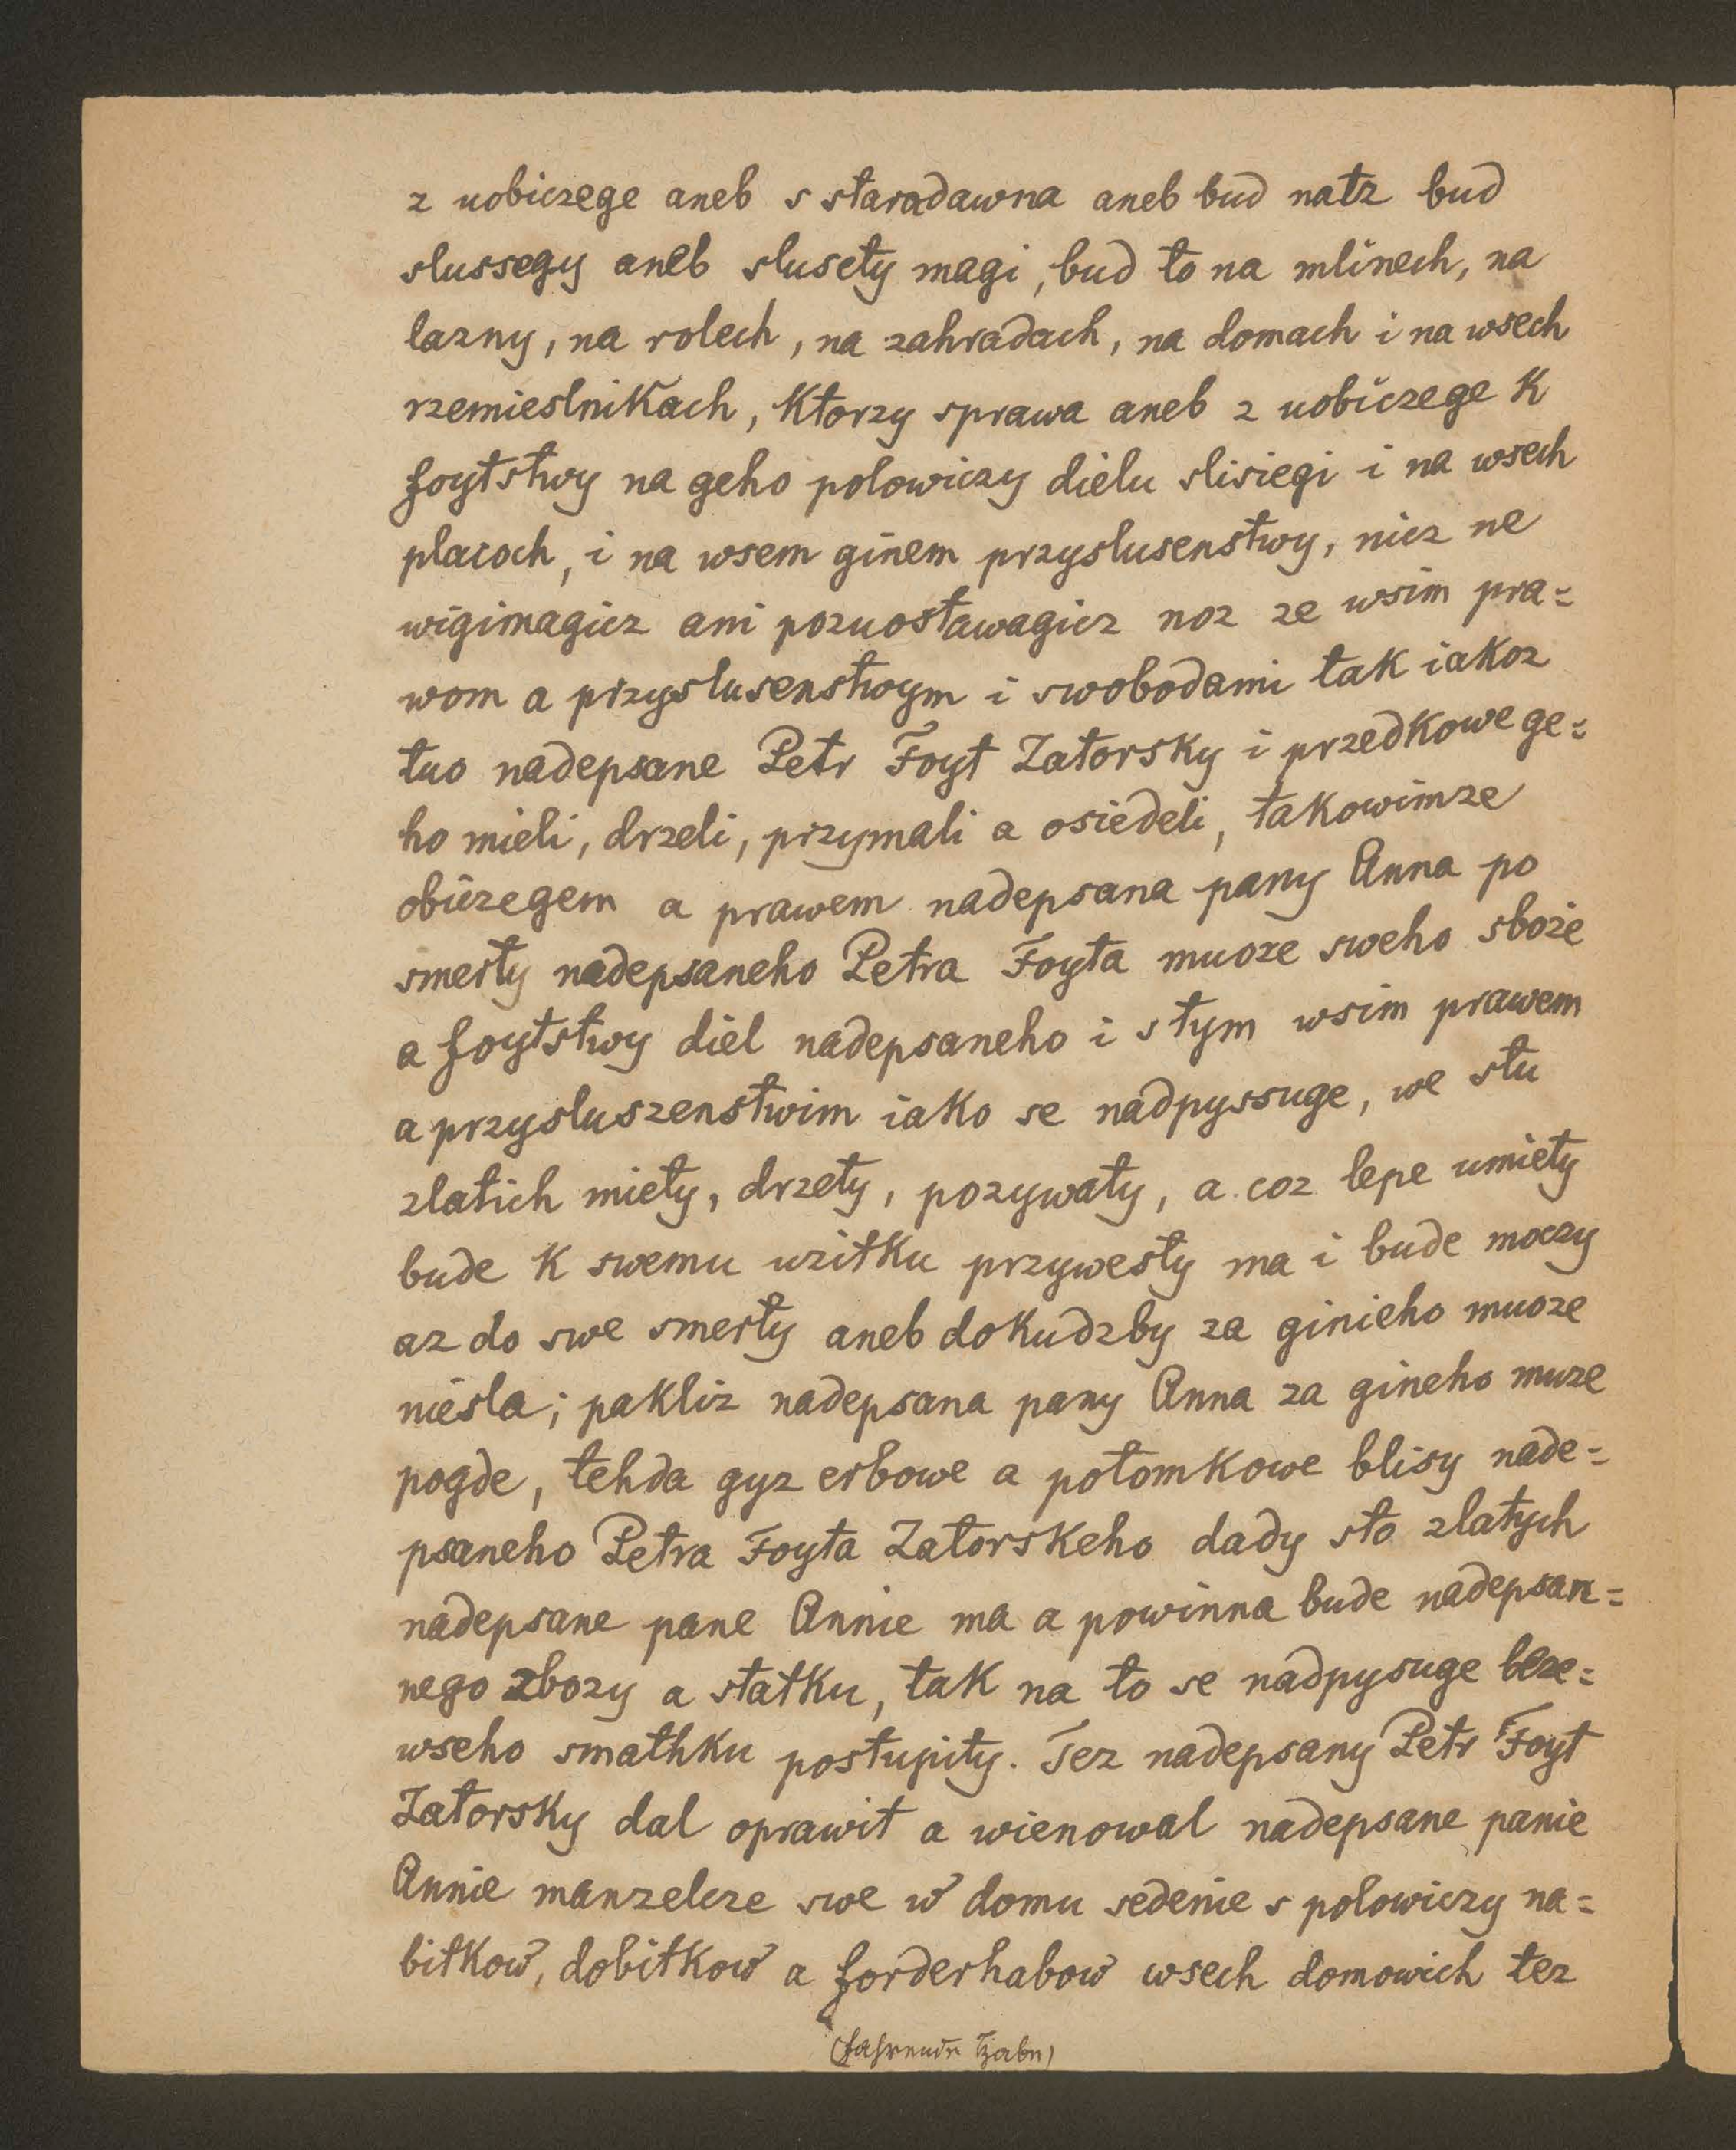 z uobiczege aneb s staradawna aneb bud natz bud
slussegy aneb slusety magi, bud to na mlinech, na
lazny, na rolech, na zahradach, na domach i na wsech
rzemieslnikach, ktorzy sprawa aneb z uobiczege k
foytstwy na geho polowiczy dielu slisiegi i na wsech
placoch, i na wsem ginem przyslusenstwy, nicz ne
wigimagicz ani pozuostawagicz noz ze wsim pra=
wom a przyslusenstwym i swobodami tak iakoz
tuo nadepsane Petr Foyt Zatorsky i przedkowe ge=
ho mieli, drzeli, przymali a osiedeli, takowimze
obiczegem a prawem nadepsana pany Anna po
smerty nadepsaneho Petra Foyta muoze sweho sboże
a foytstwy diel nadepsaneho i s tym wsim prawem
a przysluszenstwim iako se nadpyssuge, we stu
zlatich miety, drzety, pozywaty, a coz lepe umiety
bude k swemu uzitku przywesty ma i bude moczy
az do swe smerty aneb dokudzby za ginieho muoze
niesla; pakliz nadepsana pany Anna za gineho muze
pogde, tehda gyz erbowe a potomkowe blisy nade=
psaneho Petra Foyta Zatorskeho dady sto zlatych
nadepsane pane Annie ma a powinna bude nadepsan=
nego zbozy a statku, tak na to se nadpysuge beze=
wseho smathku postupity. Tez nadepsany Petr Foyt
Zatorsky dal oprawit a wienowal nadepsane panie
Annie manzelcze swe w domu sedenie s polowiczy na=
bitkow, dobitkow a forderhabow wsech domowich tez